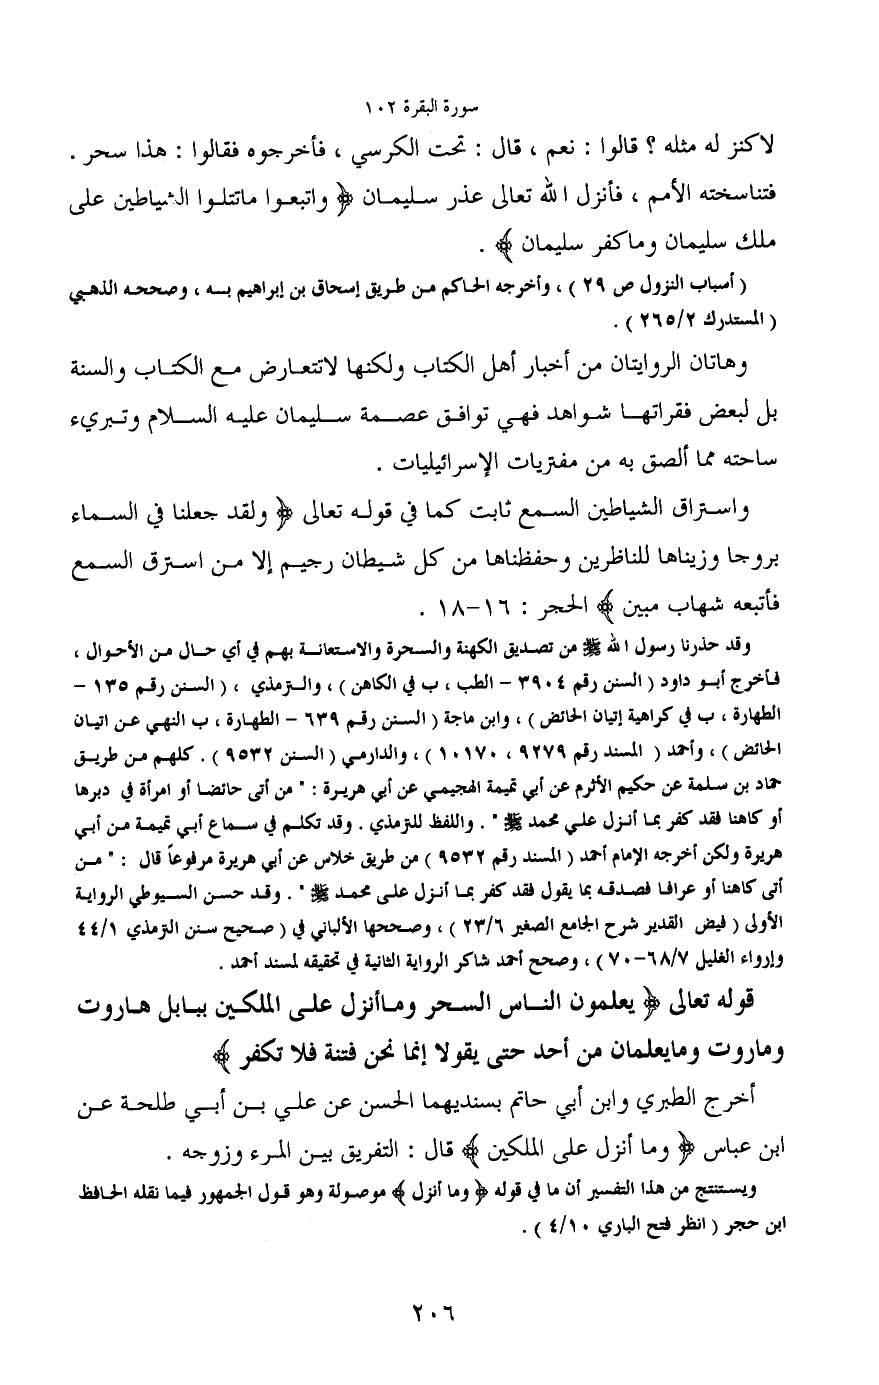 سورة البقرة ١٠٢
لاكنز له مثله ؟ قالوا : نعم ، قال : تحت الكرسي ، فأخرجوه فقالوا : هذا سحر .
فتناسخته الأمم ، فأنزل الله تعالى عذر سليمان ﴿ واتبعوا ماتتلوا الشياطين على
ملك سليمان وماكفر سليمان ﴾ .
( أسباب النزول ص ٢٩ ) ، وأخرجه الحاكم من طريق إسحاق بن إبراهيم به ، وصححه الذهبي
( المستدرك ٢٦٥/٢ ) .
وهاتان الروايتان من أخبار أهل الكتاب ولكنها لاتتعارض مع الكتاب والسنة
بل لبعض فقراتها شواهد فهي توافق عصمة سليمان عليه السلام وتبريء
ساحته مما ألصق به من مفتريات الإسرائيليات .
واستراق الشياطين السمع ثابت كما في قوله تعالى ﴿ ولقد جعلنا في السماء
بروجا وزيناها للناظرين وحفظناها من كل شيطان رجيم إلا من استرق السمع
فأتبعه شهاب مبين ﴾ الحجر : ١٦-١٨ .
وقد حذرنا رسول الله ﷺ من تصديق الكهنة والسحرة والاستعانة بهم في أي حال من الأحوال ،
فأخرج أبو داود ( السنن رقم ٣٩٠٤ - الطب ، ب في الكاهن ) ، والترمذي ، ( السنن رقم ١٣٥ -
الطهارة ، ب في كراهية إتيان الحائض ) ، وابن ماجة ( السنن رقم ٦٣٩ - الطهارة ، ب النهي عن اتيان
الحائض ) ، وأحمد ( المسند رقم ٩٢٧٩ ، ١٠١٧٠ ) ، والدارمي ( السنن ٩٥٣٢ ) . كلهم من طريق
حماد بن سلمة عن حكيم الأثرم عن أبي تميمة الهجيمي عن أبي هريرة : " من أتى حائضا أو امرأة في دبرها
أو كاهنا فقد كفر بما أنزل علي محمد ﷺ " . واللفظ للترمذي . وقد تكلم في سماع أبي تميمة من أبي
هريرة ولكن أخرجه الإمام أحمد ( المسند رقم ٩٥٣٢ ) من طريق خلاس عن أبي هريرة مرفوعاً قال : " من
أتى كاهنا أو عرافا فصدقه بما يقول فقد كفر بما أنزل على محمد ﷺ " . وقد حسن السيوطي الرواية
الأولى ( فيض القدير شرح الجامع الصغير ٢٣/٦ ) ، وصححها الألباني في ( صحيح سنن الترمذي ٤٤/١
وإرواء الغليل ٦٨/٧-٧٠ ) ، وصحح أحمد شاكر الرواية الثانية في تحقيقه لمسند أحمد .
قوله تعالى ﴿ يعلمون الناس السحر وماأنزل على الملكين ببابل هاروت
وماروت ومايعلمان من أحد حتى يقولا إنما نحن فتنة فلا تكفر ﴾
أخرج الطبري وابن أبي حاتم بسنديهما الحسن عن علي بن أبي طلحة عن
ابن عباس ﴿ وما أنزل على الملكين ﴾ قال : التفريق بين المرء وزوجه .
ويستنتج من هذا التفسير أن ما في قوله ﴿ وما أنزل ﴾ موصولة وهو قول الجمهور فيما نقله الحافظ
ابن حجر ( انظر فتح الباري ٤/١٠ ) .
٢٠٦